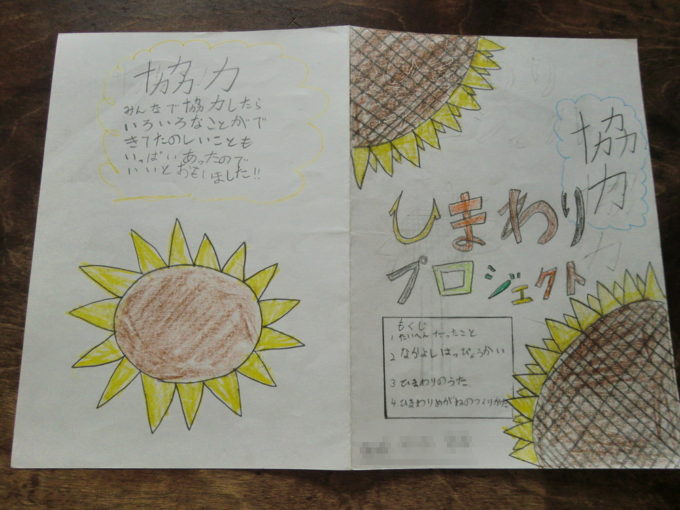 協力
みんなで協力したら
いろいろなことがで
きてたのしいことも
いっぱいあったので
いいとおもいました!!
協力
ひまわり
プロジェクト
もくじ
1 たいへんだったこと
2 なかよしはっぴょうかい
3 ひまわりのうた
4 ひまわりめがねのつくりかた